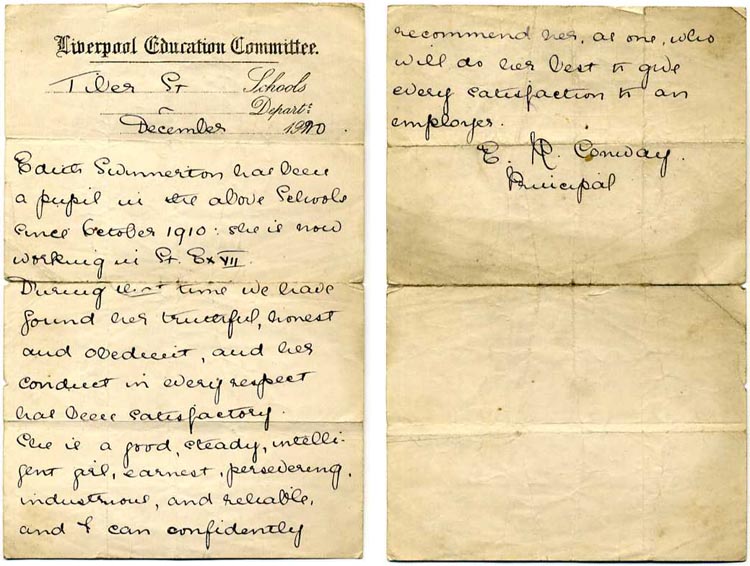 Liverpool Education Committee.
Tiber St Schools
Depart:
December 1920.
Edith Swinnerton has been
a pupil in the above Schools
since October 1910: she is now
working in St. Ex VII.
During that time we have
found her truthful, honest
and obedient, and her
conduct in every respect
has been satisfactory.
She is a good, steady, intelli-
gent girl, earnest, persevering,
industrious, and reliable,
and I can confidently
recommend her, as one, who
will do her best to give
every satisfaction to an
employer.
E. R. Conway.
Principal